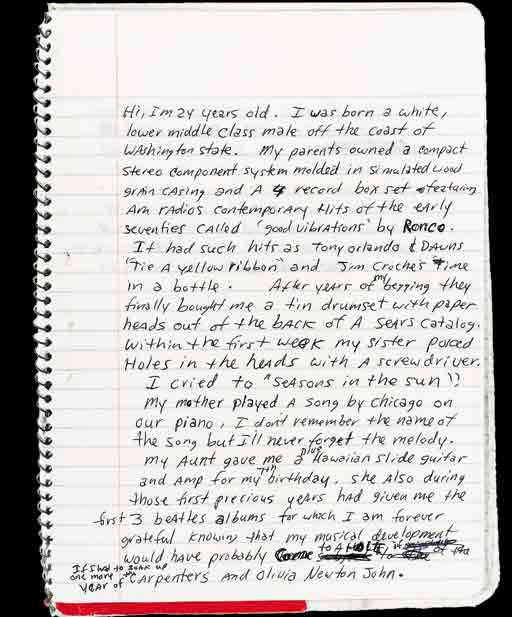 Hi, I'm 24 years old. I was born a white,
lower middle class male off the coast of
Washington state. My parents owned a compact
stereo component system molded in simulated wood
grain casing and a 4 record box set featuring
Am radios contemporary Hits of the early
seventies called 'good vibrations' by Ronco.
It had such hits as Tony orlando & Dawns
"Tie A yellow ribbon" and Jim Croche's Time
in a bottle. After years of my begging they
finally bought me a tin drumset with paper
heads out of the back of A Sears catalog.
Within the first week my sister poked
Holes in the heads with A screwdriver.
I cried to "Seasons in the sun"!!
My mother played A song by Chicago on
our piano, I don't remember the name of
the song but I'll never forget the melody.
My Aunt gave me a blue Hawaiian slide guitar
and Amp for my 7th birthday. She Also during
those first precious years had given me the
first 3 beatles albums for which I am forever
grateful knowing that my musical development
would have probably come to A HALT
If I had to soak up
one more
year of the Carpenters and Olivia Newton John.